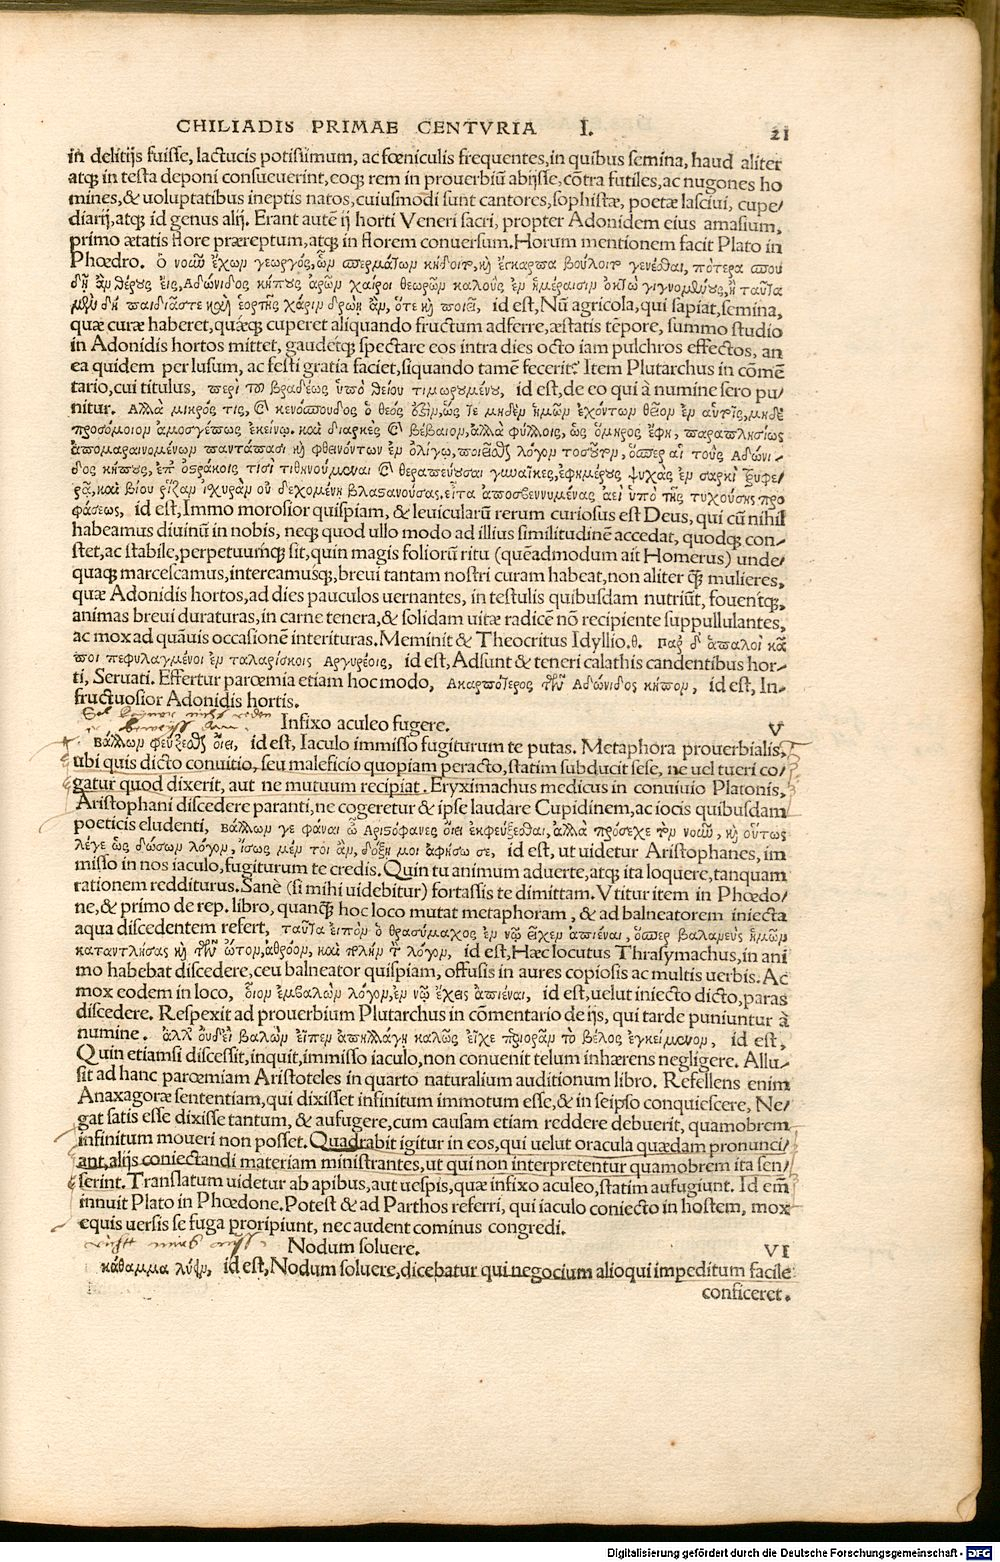 CHILIADIS PRIMAE CENTVRIA I. 21
in delitijs fuisse, lactucis potissimum, ac fœniculis frequentes, in quibus semina, haud aliter
atq; in testa deponi consueuerint, eoq; rem in prouerbiū abijsse, cōtra futiles, ac nugones ho
mines, & uoluptatibus ineptis natos, cuiusmodi sunt cantores, sophistæ, poetæ lasciui, cupe/
diarij, atq; id genus alij. Erant autē ij horti Veneri sacri, propter Adonidem eius amasium,
primo ætatis flore præreptum, atq; in florem conuersum. Horum mentionem facit Plato in
Phœdro. ὁ νοῦν ἔχων γεωργός, ὧν σπερμάτων κήδοιτο, καὶ ἔγκαρπα βούλοιτο γενέσθαι, πότερα σπου
δῇ ἂν θέρους εἰς, Αδώνιδος κήπους ἀρῶν χαίροι θεωρῶν καλοὺς ἐν ἡμέραισιν ὀκτὼ γιγνομένους, ἢ ταῦτα
μὲν δὴ παιδιᾶς τε καὶ ἑορτῆς χάριν δρῴη ἂν, ὅτε καὶ ποιεῖ, id est, Nū agricola, qui sapiat, semina,
quæ curæ haberet, quæq; cuperet aliquando fructum adferre, æstatis tēpore, summo studio
in Adonidis hortos mittet, gaudetq; spectare eos intra dies octo iam pulchros effectos, an
ea quidem per lusum, ac festi gratia faciet, siquando tamē fecerit? Item Plutarchus in cōmē
tario, cui titulus, περὶ τοῦ βραδέως ὑπὸ θείου τιμωρουμένου, id est, de eo qui à numine sero pu/
nitur. Αλλὰ μικρός τις, καὶ κενόσπουδος ὁ θεός ὅξιν, ὥς τε μηδὲν ἡμῶν ἐχόντων θεῖον ἐν αὑτοῖς, μηδὲ
προσόμοιον ἀμοσγέπως ἐκείνῳ. καὶ διαρκὲς καὶ βέβαιον, ἀλλὰ φύλλοις, ὡς ὅμηρος ἔφη, παραπλησίως
ἀπομαραινομένων παντάπασι καὶ φθεινόντων ἐν ὀλίγῳ, ποιεῖσθαι λόγον τοσοῦτον, ὥσπερ αἱ τοὺς Αδώνι/
δος κήπους, ἐπ' ὀστράκοις τισὶ τιθηνούμεναι καὶ θεραπεύουσαι γυναῖκες, ἐφημέρους ψυχὰς ἐν σαρκὶ τρυφε/
ρᾷ, καὶ βίου ῥίζαν ἰχυρὰν οὐ δεχομένῃ βλαστανούσας, εἶτα ἀποσβεννυμένας ἀεὶ ὑπὸ τῆς τυχούσης προ
φάσεως, id est, Immo morosior quispiam, & leuicularū rerum curiosus est Deus, qui cū nihil
habeamus diuinū in nobis, neq; quod ullo modo ad illius similitudinē accedat, quodq; con/
stet, ac stabile, perpetuumq; sit, quin magis foliorū ritu (quēadmodum ait Homerus) unde/
quaq; marcescamus, intereamusq;, breui tantam nostri curam habeat, non aliter q̃ mulieres,
quæ Adonidis hortos, ad dies pauculos uernantes, in testulis quibusdam nutriūt, fouentq;,
animas breui duraturas, in carne tenera, & solidam uitæ radicē nō recipiente suppullulantes,
ac mox ad quāuis occasionē interituras. Meminit & Theocritus Idyllio. θ. παρ' δ' ἁπαλοὶ κᾶ
ποι πεφυλαγμένοι ἐν ταλαρίσκοις Αργυρέοις, id est, Adsunt & teneri calathis candentibus hor/
ti, Seruati. Effertur parœmia etiam hoc modo, Ακαρπότερος τῶν Αδώνιδος κήπων, id est, In/
fructuosior Adonidis hortis.
Infixo aculeo fugere. V
βάλλων φεύξεσθαι οἴει, id est, Iaculo immisso fugiturum te putas. Metaphora prouerbialis,
ubi quis dicto conuitio, seu maleficio quopiam peracto, statim subducit sese, ne uel tueri co/
gatur quod dixerit, aut ne mutuum recipiat. Eryximachus medicus in conuiuio Platonis,
Aristophani discedere paranti, ne cogeretur & ipse laudare Cupidinem, ac iocis quibusdam
poeticis eludenti, βάλλων γε φάναι ὦ Αριστόφανες οἴει ἐκφεύξεσθαι, ἀλλὰ πρόσεχε τὸν νοῦν, καὶ οὕτως
λέγε ὡς δώσων λόγον, ἴσως μέν τοι ἂν, δόξῃ μοι ἀφήσω σε, id est, ut uidetur Aristophanes, im
misso in nos iaculo, fugiturum te credis. Quin tu animum aduerte, atq; ita loquere, tanquam
rationem redditurus. Sanè (si mihi uidebitur) fortassis te dimittam. Vtitur item in Phœdo/
ne, & primo de rep. libro, quanq̃ hoc loco mutat metaphoram, & ad balneatorem iniecta
aqua discedentem refert, ταῦτα εἰπὼν ὁ θρασύμαχος ἐν νῷ εἶχεν ἀπιέναι, ὥσπερ βαλανεὺς ἡμῶν
καταντλήσας καὶ τῶν ὤτων, ἀθρόον, καὶ πολὺν τὸν λόγον, id est, Hæc locutus Thrasymachus, in ani
mo habebat discedere, ceu balneator quispiam, offusis in aures copiosis ac multis uerbis. Ac
mox eodem in loco, οἷον ἐμβαλὼν λόγον, ἐν νῷ ἔχεις ἀπιέναι, id est, uelut iniecto dicto, paras
discedere. Respexit ad prouerbium Plutarchus in cōmentario de ijs, qui tarde puniuntur à
numine. ἀλλ' οὐδ' εἰ βαλὼν εἶπεν ἀπηλλάγη καλῶς εἶχε περιορᾶν τὸ βέλος ἐγκείμενον, id est,
Quin etiamsi discessit, inquit, immisso iaculo, non conuenit telum inhærens negligere. Allu/
sit ad hanc parœmiam Aristoteles in quarto naturalium auditionum libro. Refellens enim
Anaxagoræ sententiam, qui dixisset infinitum immotum esse, & in seipso conquiescere, Ne/
gat satis esse dixisse tantum, & aufugere, cum causam etiam reddere debuerit, quamobrem
infinitum moueri non posset. Quadrabit igitur in eos, qui uelut oracula quædam pronunci/
ant, alijs coniectandi materiam ministrantes, ut qui non interpretentur quamobrem ita sen/
serint. Translatum uidetur ab apibus, aut uespis, quæ infixo aculeo, statim aufugiunt. Id em̄
innuit Plato in Phœdone. Potest & ad Parthos referri, qui iaculo coniecto in hostem, mox
equis uersis se fuga proripiunt, nec audent cominus congredi.
Nodum soluere. VI
κάθαμμα λύειν, id est, Nodum soluere, dicebatur qui negocium alioqui impeditum facile
conficeret.
Digitalisierung gefördert durch die Deutsche Forschungsgemeinschaft - DFG